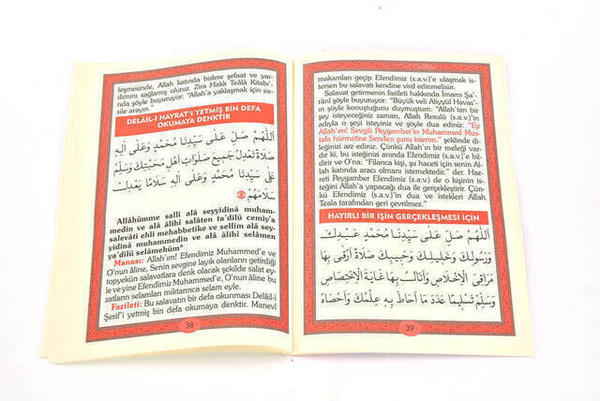 leşmesinde, Allah katında bizlere şefaat ve yar-
dımını sağlamış oluruz. Zira Hakk Teâlâ Kitabı-
nda şöyle buyuruyor: "Allah'a yaklaşmak için ve-
sile arayın."
DELÂİL-İ HAYRAT'I YETMİŞ BİN DEFA
OKUMAYA DENKTİR
اَللّٰهُمَّ صَلِّ عَلَى سَيِّدِنَا مُحَمَّدٍ وَعَلَى اٰلِهِ
صَلَاةً تَعْدِلُ جَمِيعَ صَلَوَاتِ اَهْلِ مَحَبَّتِكَ وَسَلِّمْ
عَلَى سَيِّدِنَا مُحَمَّدٍ وَعَلَى اٰلِهِ سَلَامًا يَعْدِلُ
سَلَامَهُمْ
Allâhümme salli alâ seyyidinâ muham-
medin ve alâ âlihî salâten ta'dilü cemiy'a
salevâti ehli mehabbetike ve sellim alâ sey-
yidinâ muhammedin ve alâ âlihî selâmen
ya'dilü selâmehüm"
Manası: Allah'ım! Efendimiz Muhammed'e ve
O'nun âline, Senin sevgine layık olanların getirdiği
eytopyekün salavatlara denk olacak şekilde salat ey-
le ve yine Efendimiz Muhammed'e, O'nun âline bu
zatların selamları miktarınca selam eyle.
Fazileti: Bu salavatın bir defa okunması Delâil-i
Şerif'i yetmiş bin defa okumaya denktir. Manevî
38
makamları geçip Efendimiz (s.a.v.)'e ulaşmak is-
tersen bu salavatı kendine vird edinmelisin.
Salavat getirmenin fazileti hakkında İmam Şa'-
rânî şöyle buyuruyor: "Büyük veli Aliyyül Havas'-
ın şöyle konuştuğunu duymuştum: "Allah'tan bir
şey isteyeceğiniz zaman, Allah Resulü (s.a.v.)'in
adıyla o şeyi isteyiniz ve şöyle dua ediniz: "Ey
Allah'ım! Sevgili Peygamber'in Muhammed Mus-
tafa hürmetine Senden şunu isterim." şeklinde di-
leğinizi arz ediniz. Çünkü Allah'ın bir meleği var-
dır ki, bu isteğinizi anında Efendimiz (s.a.v.)'e bil-
dirir ve O'na: "Filanca kişi, şu haceti için senin Al-
lah katında aracı olmanı istemektedir." der. Haz-
reti Peygamber Efendimiz (s.a.v.) de o kişinin is-
teğini Allah'a yapacağı dua ile gerçekleştirir. Çün-
kü Efendimiz (s.a.v.)'in dua ve istekleri Allah
Teala tarafından geri çevrilmez."
HAYIRLI BİR İŞİN GERÇEKLEŞMESİ İÇİN
اَللّٰهُمَّ صَلِّ عَلَى سَيِّدِنَا مُحَمَّدٍ عَبْدِكَ
وَرَسُولِكَ وَخَلِيلِكَ وَحَبِيبِكَ صَلَاةً اَرْقَى بِهَا
مَرَاقِيَ الْاِخْلَاصِ وَاَنَالُ بِهَا غَايَةَ الْاِخْتِصَاصِ
وَسَلِّمْ تَسْلِيمًا عَدَدَ مَا اَحَاطَ بِهِ عِلْمُكَ وَاَحْصَاهُ
39